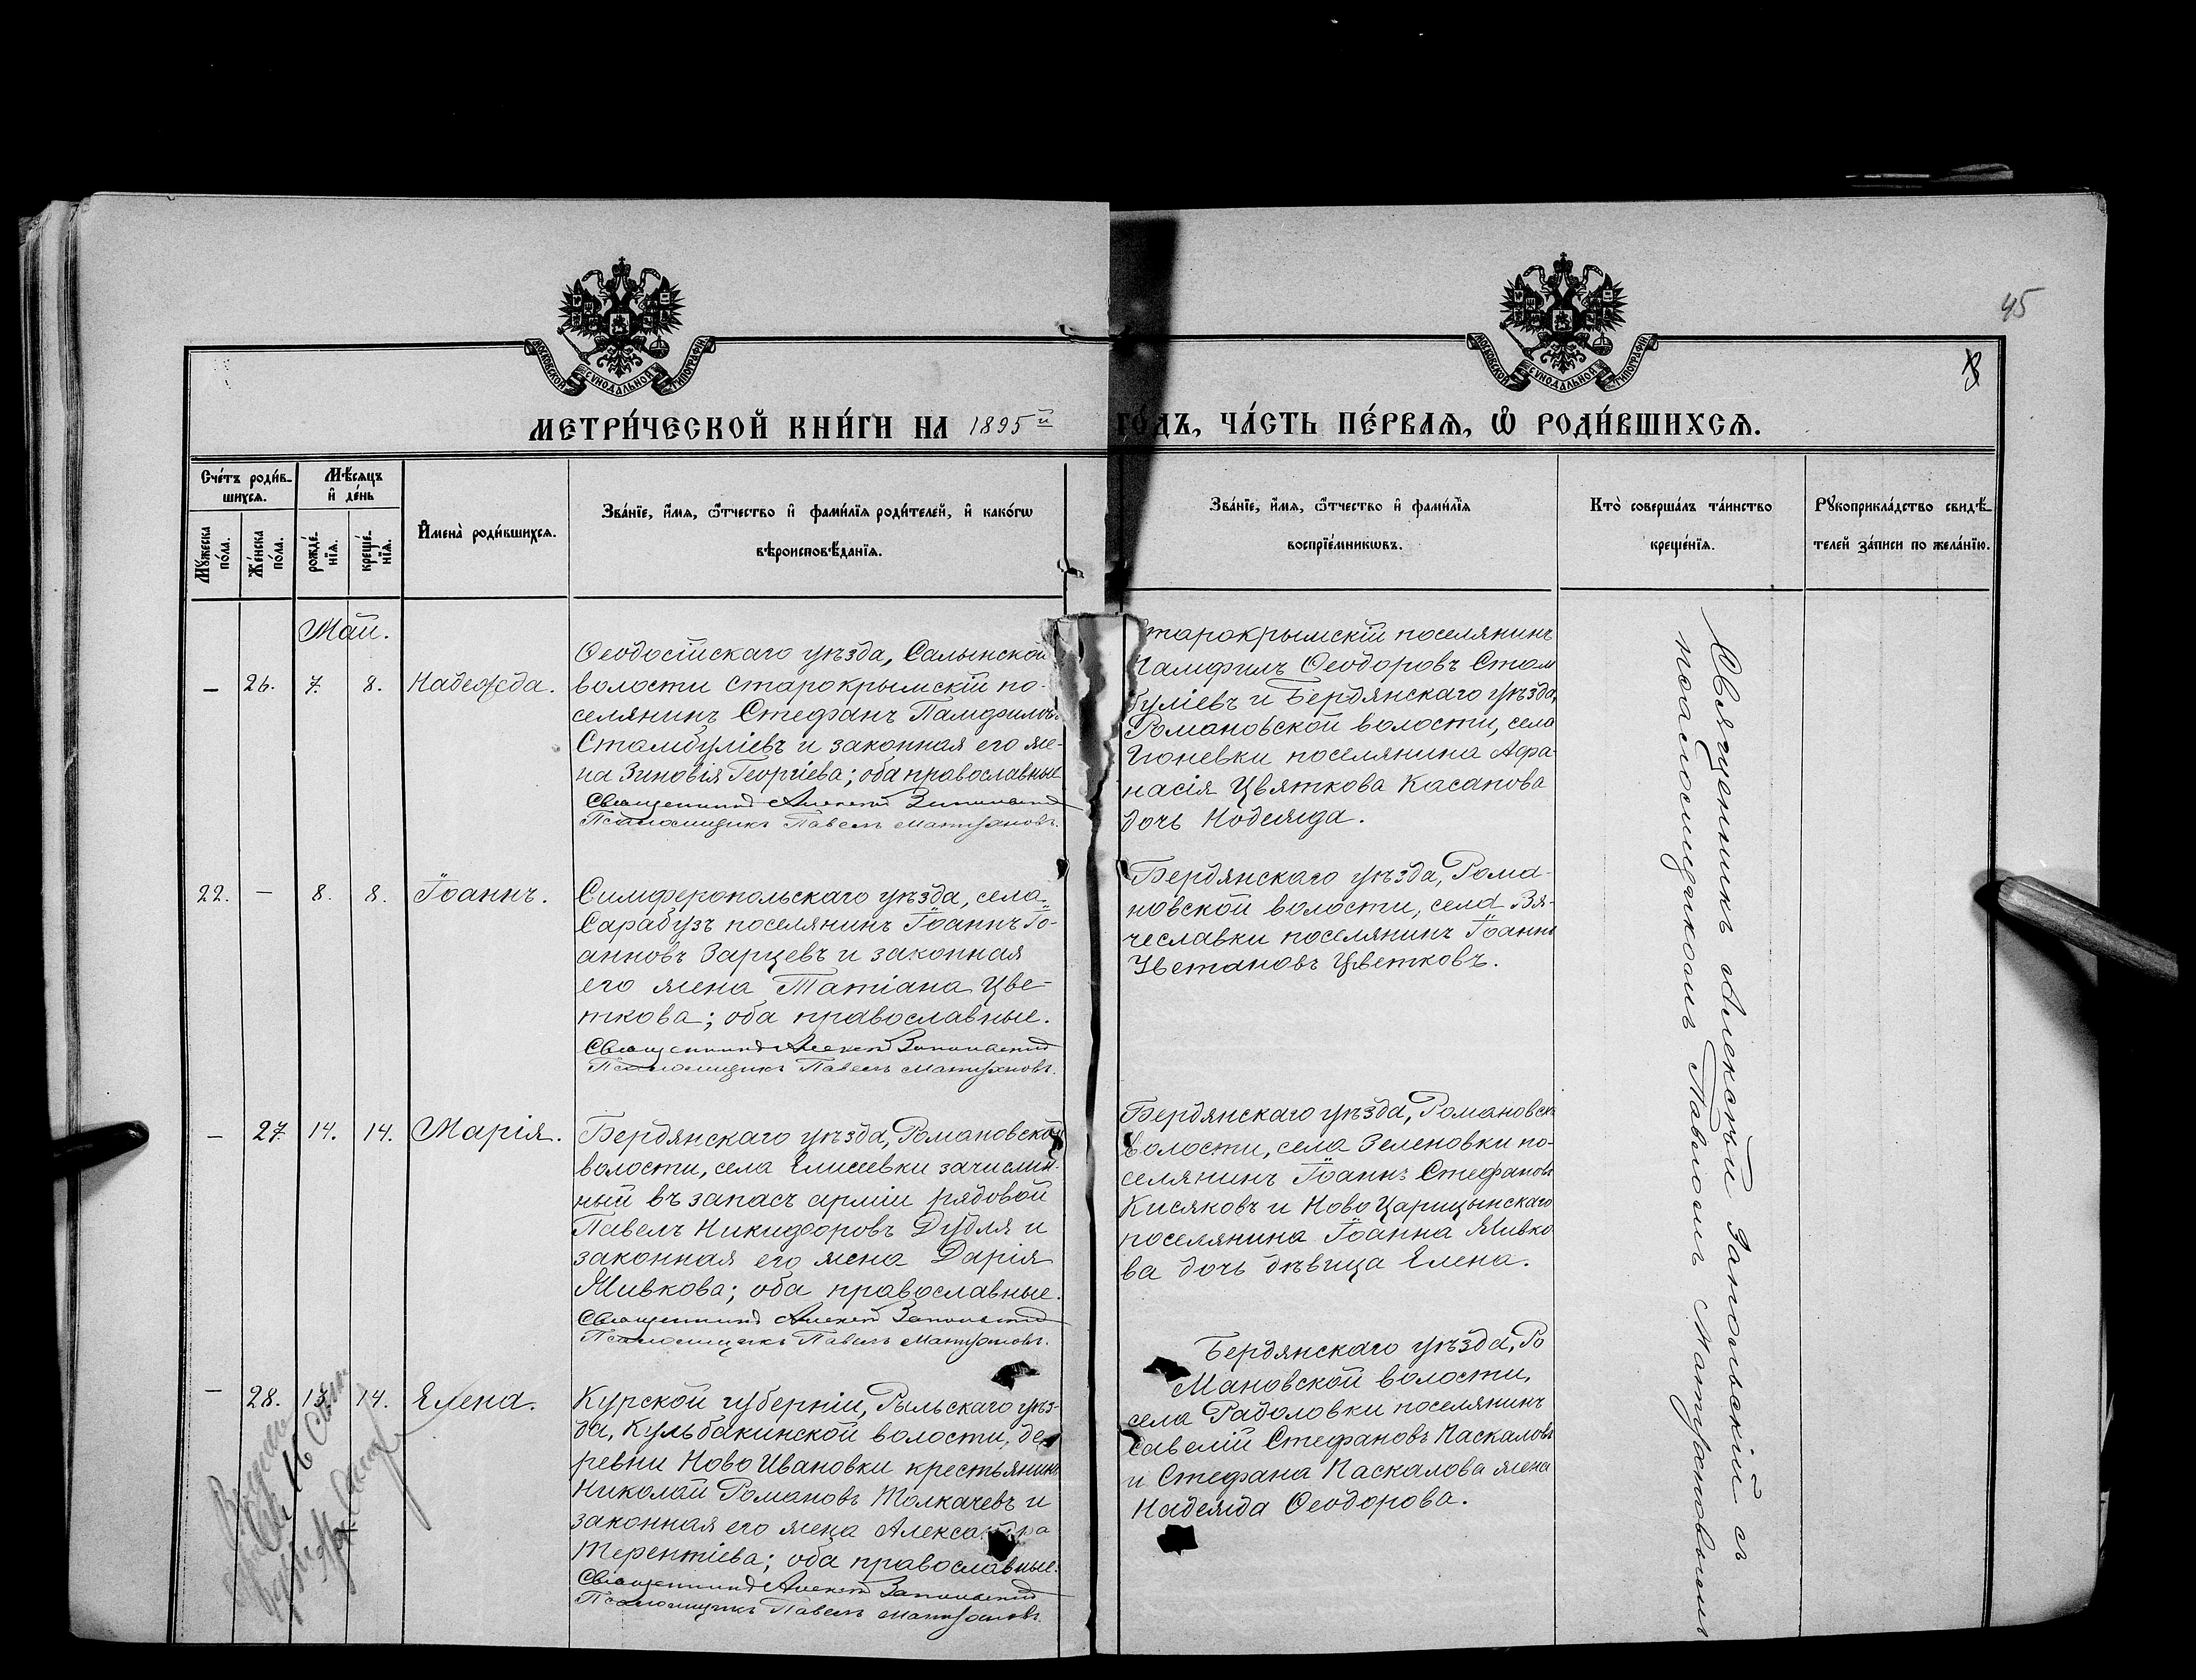 45
МОСКОВСКОЙ СѴНОДАЛЬНОЙ ТИПОГРАФІИ
МОСКОВСКОЙ СѴНОДАЛЬНОЙ ТИПОГРАФІИ
МЕТРИ́ЧЕСКОЙ КНИ́ГИ НА 1895й ГО́ДЪ, ЧА́СТЬ ПЕ́РВАЯ, Ѡ РОДИ́ВШИХСЯ.
Сче́тъ роди́в-
шихся.
Мꙋ́жеска по́ла.
Же́нска по́ла.
Мѣ́сяцъ
и҆ де́нь
рожде́нїя.
креще́нїя.
И҆мена̀ роди́вшихся.
Зва́нїе, и҆́мя, ѻ҆́тчество и҆ фами́лїя роди́телей, и҆ како́гѡ
вѣроисповѣ́данїя.
Зва́нїе, и҆́мя, ѻ҆́тчество и҆ фами́лїя
воспрїе́мникѡвъ.
Кто̀ соверша́лъ та́инство
креще́нїя.
Рꙋкоприкла́дство свидѣ́-
телей за́писи по жела́нїю.
Май.
— 26. 7. 8. Надежда.
Ѳеодосійскаго уѣзда, Салынской
волости Старокрымскій по-
селянинъ Стефанъ Памфиловъ
Стамбуліевъ и законная его же-
на Зиновія Георгіева; оба православные
Священникъ Алексѣй Запольскій
Псаломщикъ Павелъ
тарокрымскій поселянинъ
амфилъ Ѳеодоровъ Стам
буліевъ и Бердянскаго уѣзда,
Романовской волости, села
поселянина Афа-
насія Цвяткова Касапова
дочь Надежда.
22. — 8. 8. Іоаннъ.
Симферопольскаго уѣзда, села
Сарабузъ поселянинъ Іоаннъ Іо-
анновъ Зарцевъ и законная
его жена Татіана Цве-
ткова; оба православные.
Священникъ Алексѣй Запольскій
Псаломщикъ Павелъ
Бердянскаго уѣзда, Рома-
новской волости, села Вя-
чеславки поселянинъ Іоаннъ
Цветановъ Цветковъ.
— 27. 14. 14. Марія.
Бердянскаго уѣзда, Романовской
волости, села Елисеевки зачислен-
ный въ запасъ арміи рядовой
Павелъ Никифоровъ Дубля и
законная его жена Дарія
Живкова; оба православные.
Священникъ Алексѣй Запольскій
Псаломщикъ Павелъ
Бердянскаго уѣзда, Романовск
волости, села Зеленовки по-
селянинъ Іоаннъ Стефановъ
Кисяковъ и Ново Царицынскаго
поселянина Іоанна Живко
ва дочь дѣвица Елена.
— 28. 13. 14. Елена.
Курской губерніи, Рыльскаго уѣз-
да, Кульбакинской волости, де
ревни Ново Ивановки крестьянинъ
Николай Романовъ Толкачевъ и
законная его жена Александра
Терентіева; оба православные.
Священникъ Алексѣй Запольскій
Псаломщикъ Павелъ
Бердянскаго уѣзда, Ро
мановской волости,
села Радоловки поселянинъ
Савелій Стефановъ Паскаловъ
и Стефана Паскалова жена
Надежда Ѳеодорова.
Священникъ Алексѣй Запольскій съ
псаломщикомъ Павломъ